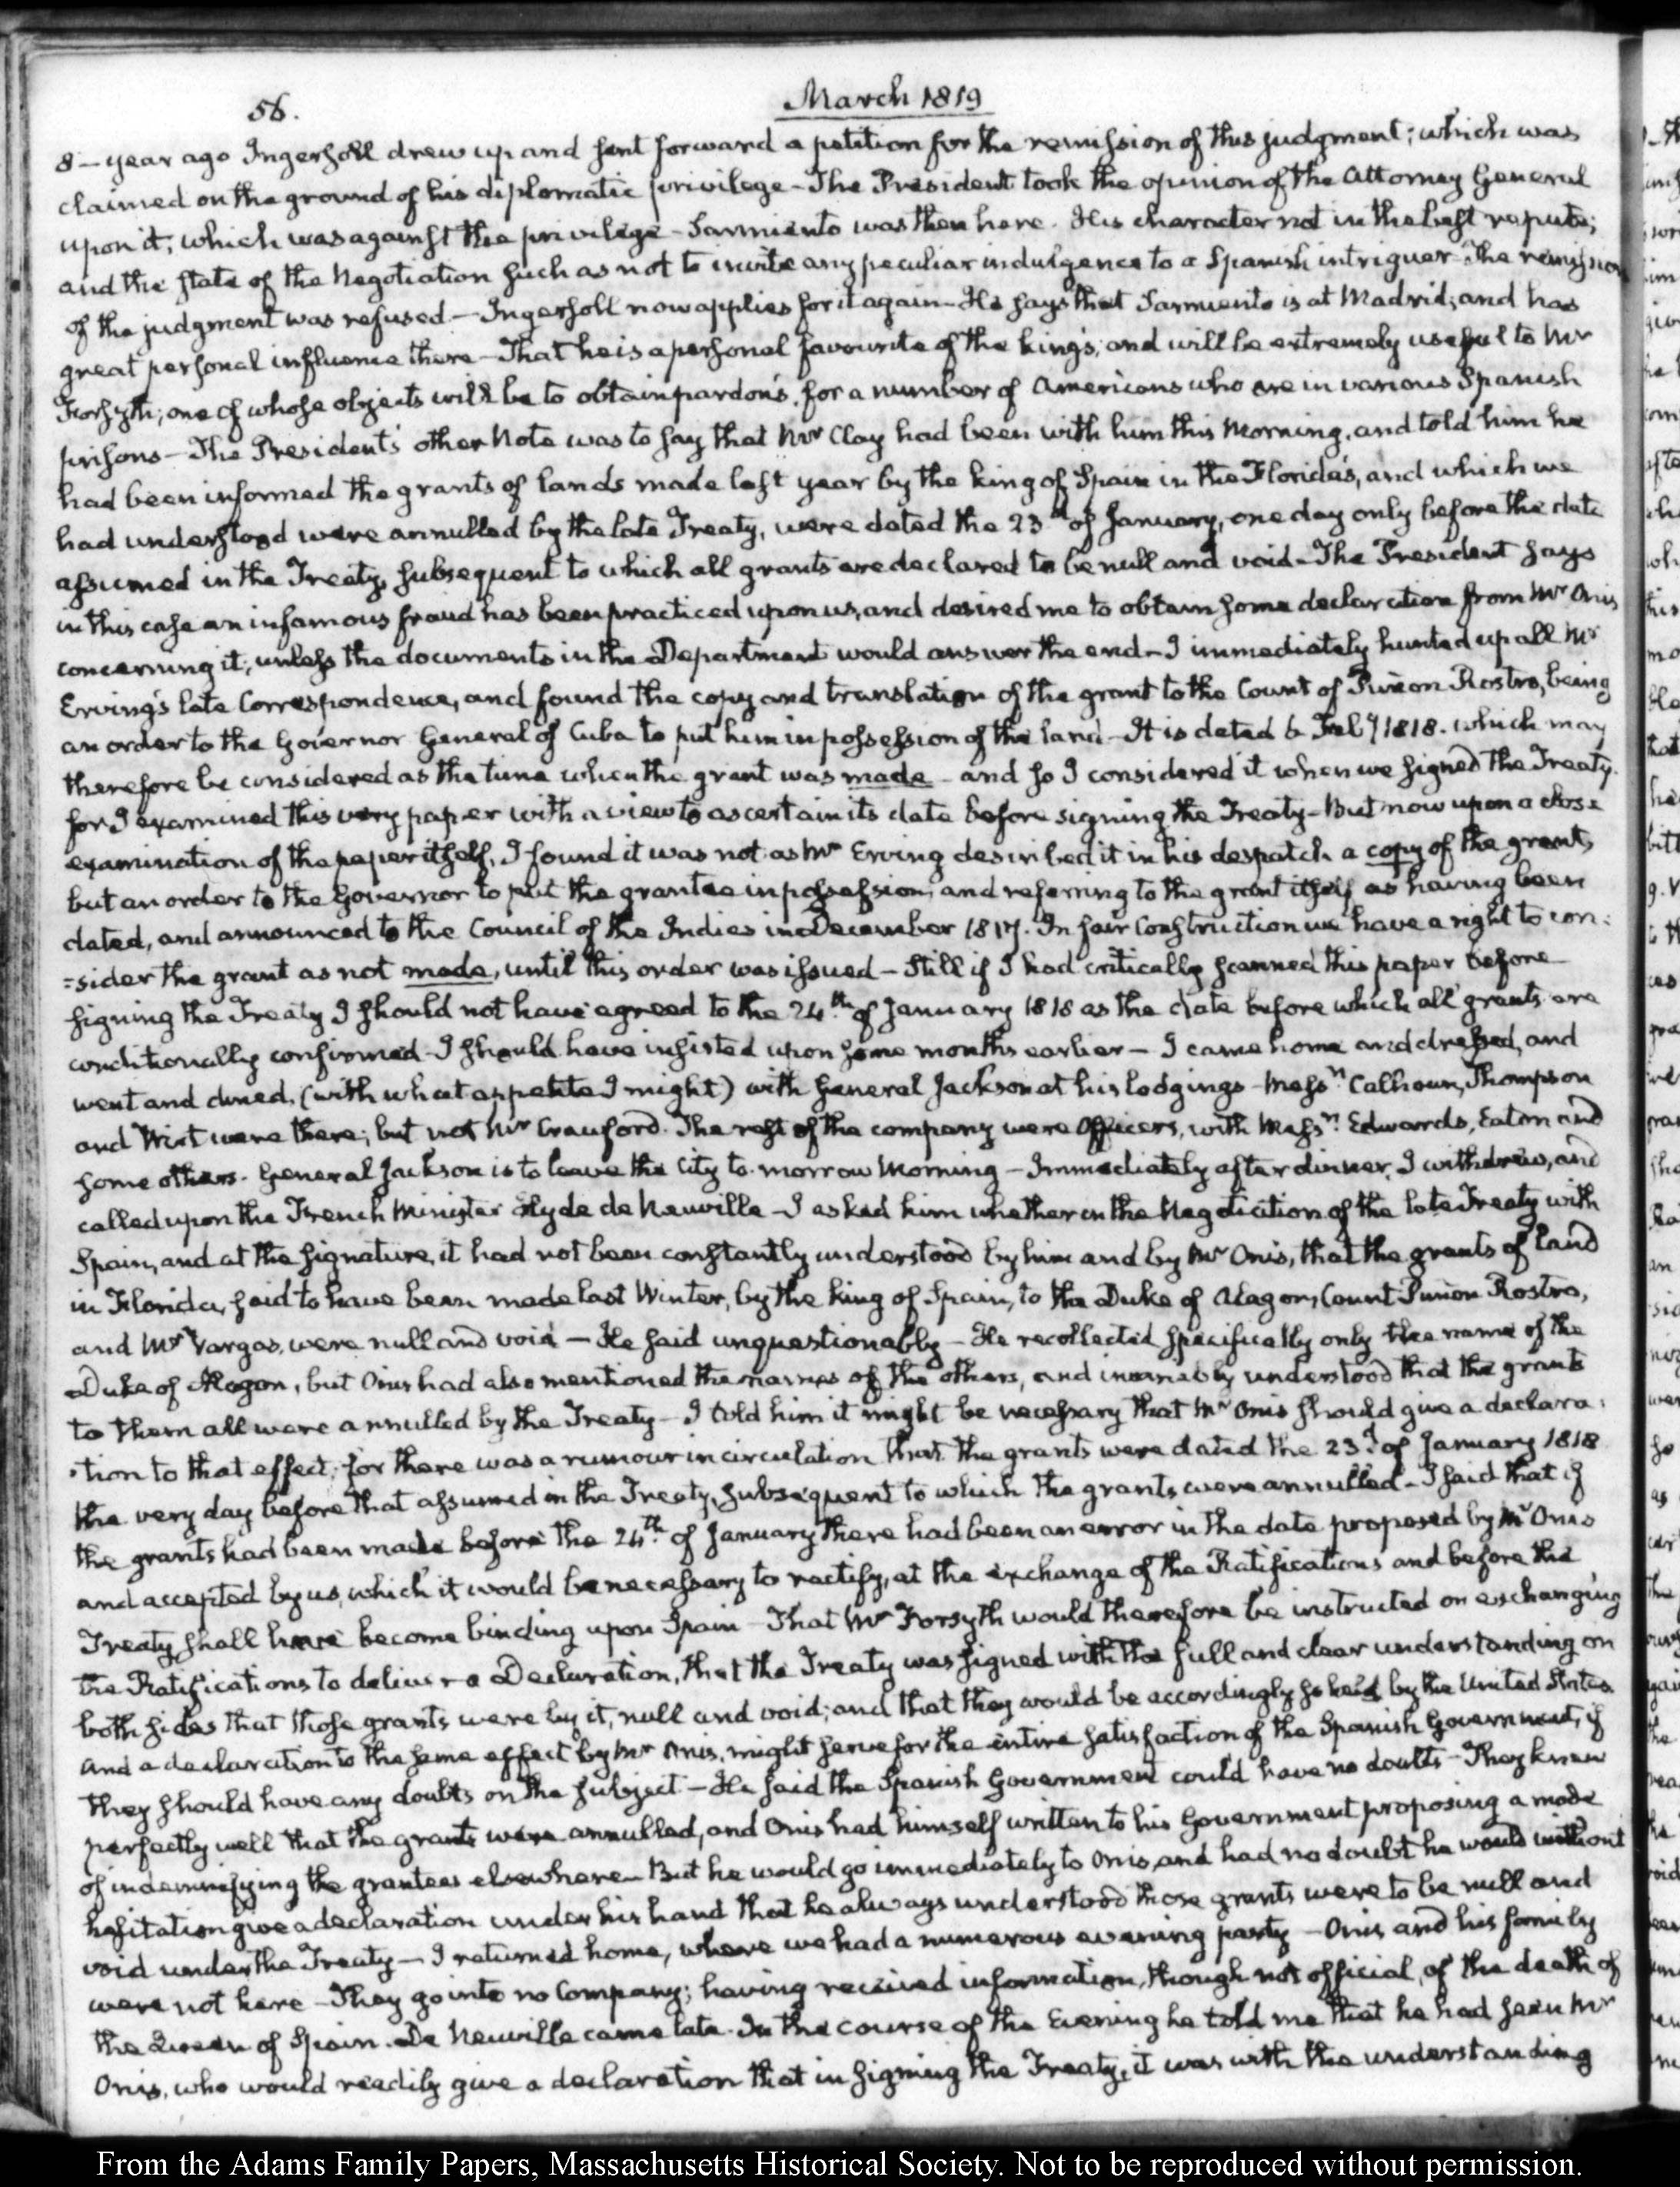 56.
March 1819
8 – year ago Ingersoll drew up and sent forward a petition for the remission of this judgment; which was
claimed on the ground of his diplomatic privilege – The President took the opinion of the Attorney General
upon it; which was against the privilege – Sarmiento was then here. His character not in the best repute;
and the state of the Negotiation such as not to invite any peculiar indulgence to a Spanish intriguer – The remission
of the judgment was refused. – Ingersoll now applies for it again – He says that Sarmiento is at Madrid; and has
great personal influence there – That he is a personal favourite of the king's; and will be extremely useful to Mr
Forsyth; one of whose objects will be to obtain pardon's, for a number of Americans who are in various Spanish
prisons – The President's other Note was to say that Mr Clay had been with him this Morning, and told him he
had been informed the grants of lands made last year by the king of Spain in the Florida's, and which we
had understood were annulled by the late Treaty, were dated the 23d of January, one day only before the date
assumed in the Treaty, subsequent to which all grants are declared to be null and void – The President says
in this case an infamous fraud has been practiced upon us, and desired me to obtain some declaration from Mr Onis
concerning it; unless the documents in the Department would answer the end – I immediately hunted up all Mr
Erving's late Correspondence, and found the copy and translation of the grant to the Count of Puñon Rostro, being
an order to the Governor General of Cuba to put him in possession of the land – It is dated 6 Feby 1818. which may
therefore be considered as the time when the grant was made – and so I considered it when we signed the Treaty.
for I examined this very paper with a view to ascertain its date before signing the Treaty – But now upon a close
examination of the paper itself, I found it was not as Mr Erving described it in his despatch a copy of the grant,
but an order to the Governor to put the grantee in possession; and referring to the grant itself as having been
dated, and announced to the Council of the Indies in December 1817. In fair Construction we have a right to con:
=sider the grant as not made, until this order was issued – Still if I had critically scanned this paper before
signing the Treaty I should not have agreed to the 24th of January 1818 as the date before which all grants are
conditionally confirmed – I should have insisted upon some months earlier – I came home and dressed, and
went and dined, (with what appetite I might) with General Jackson at his lodgings – Messrs Calhoun, Thompson
and Wirt were there; but not Mr Crawford. The rest of the company were Officers, with Messrs Edwards, Eaton and
some others. General Jackson is to leave the City to-morrow Morning – Immediately after dinner, I withdrew, and
called upon the French Minister Hyde de Neuville – I asked him whether in the Negotiation of the late Treaty with
Spain, and at the signature, it had not been constantly understood by him and by Mr Onis, that the grants of land
in Florida, said to have been made last Winter, by the king of Spain, to the Duke of Alagon, Count Puñon Rostro,
and Mr Vargas, were null and void – He said unquestionably – He recollected specifically only the name of the
Duke of Alagon, but Onis had also mentioned the names of the others, and invariably understood that the grants
to them all were annulled by the Treaty – I told him it might be necessary that Mr Onis should give a declara:
:tion to that effect; for there was a rumour in circulation that the grants were dated the 23d of January 1818
the very day before that assumed in the Treaty, subsequent to which the grants were annulled – I said that if
the grants had been made before the 24th of January there had been an error in the date proposed by Mr Onis
and accepted by us, which it would be necessary to rectify, at the exchange of the Ratifications and before the
Treaty shall have become binding upon Spain – That Mr Forsyth would therefore be instructed on exchanging
the Ratifications to deliver a Declaration, that the Treaty was signed with the full and clear understanding on
both sides that those grants were by it, null and void; and that they would be accordingly so held by the United States
and a declaration to the same effect by Mr Onis, might serve for the entire satisfaction of the Spanish Government, if
they should have any doubts on the subject – He said the Spanish Government could have no doubts – They knew
perfectly well that the grants were annulled, and Onis had himself written to his Government proposing a mode
of indemnifying the grantees elsewhere – But he would go immediately to Onis, and had no doubt he would without
hesitation give a declaration under his hand that he always understood those grants were to be null and
void under the Treaty – I returned home, where we had a numerous evening party – Onis and his family
were not here – They go into no Company; having received information, though not official, of the death of
the Queen of Spain. De Neuville came late. In the course of the Evening he told me that he had seen Mr
Onis, who would readily give a declaration that in signing the Treaty, it was with the understanding
From the Adams Family Papers, Massachusetts Historical Society. Not to be reproduced without permission.